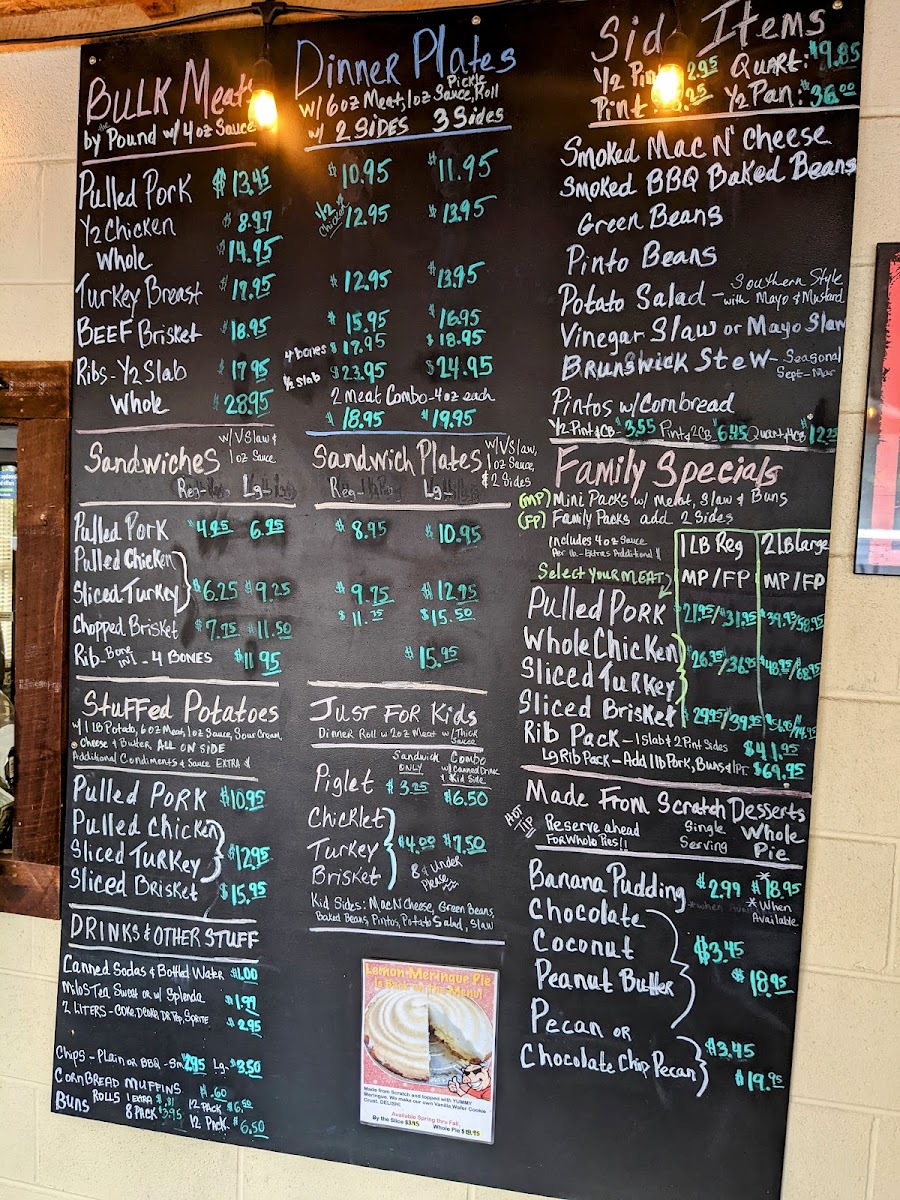 BULK Meats
by the Pound w/ 4 oz Sauce
Pulled Pork $13.45
1/2 Chicken $8.97
Whole $14.95
Turkey Breast $17.95
BEEF Brisket $18.95
Ribs - 1/2 Slab $17.95
Whole $28.95
Dinner Plates
w/ 6oz Meat, 1oz Sauce, Pickle, Roll
w/ 2 SiDES 3 Sides
$10.95 $11.95
1/2 chicken $12.95 $13.95
$12.95 $13.95
$15.95 $16.95
4 bones $17.95 $18.95
1/2 slab $23.95 $24.95
2 Meat Combo - 4oz each
$18.95 $19.95
Items
Quart: $9.85
Pint 1/2 Pan: $36.00
Smoked Mac N' Cheese
Smoked BBQ Baked Beans
Green Beans
Pinto Beans
Potato Salad - Southern Style with Mayo & Mustard
Vinegar Slaw or Mayo Slaw
Brunswick Stew - Seasonal Sept-Mar
Pintos w/ Cornbread
1/2 Pint & CB - $3.55 Pint & 2CB $6.45 Quart & 4CB $12.25
Sandwiches w/ V Slaw & 1 oz Sauce
Reg- Lg-
Pulled Pork $4.95 6.95
Pulled Chicken
Sliced Turkey $6.25 $9.25
Chopped Brisket $7.75 $11.50
Rib - Bone in! - 4 BONES $11.95
Sandwich Plates w/ V Slaw, 1oz Sauce, & 2 Sides
Reg- Lg-
$8.95 $10.95
$9.75 $12.95
$11.75 $15.50
$15.95
Family Specials
(MP) Mini Packs w/ Meat, Slaw & Buns
(FP) Family Packs add 2 Sides
includes 4oz Sauce
Per lb. - Extras Additional $
1 LB Reg 2 LB Large
Select Your MEAT
MP/FP MP/FP
Pulled Pork $21.95/31.95 $39.95/58.95
Whole Chicken
Sliced Turkey $26.95/36.95 $48.95/68.95
Sliced Brisket $29.95/39.95
Rib Pack - 1 Slab & 2 Pint Sides $41.95
Lg Rib Pack - Add 1 lb Pork, Buns & 1 PT. $69.95
Stuffed Potatoes
w/ 1 LB Potato, 6oz Meat, 1oz Sauce, Sour Cream,
Cheese & Butter ALL ON SIDE
Additional Condiments & Sauce EXTRA $
Pulled Pork $10.95
Pulled Chicken
Sliced Turkey $12.95
Sliced Brisket $15.95
Just For Kids
Dinner Roll w/ 2oz Meat w/ Thick Sauce
Sandwich ONLY Combo w/ Canned Drink & Kid Side
Piglet $3.25 $6.50
Chicklet
Turkey $4.00 $7.50
Brisket 8 & Under Please
Kid Sides: Mac N Cheese, Green Beans,
Baked Beans, Pintos, Potato Salad, Slaw
Made From Scratch Desserts
HOT TIP Reserve ahead For Whole Pies!! Single Serving Whole Pie
Banana Pudding $2.99 *$18.95
*When Available
Chocolate
Coconut $3.45
Peanut Butter $18.95
Pecan or $3.45
Chocolate Chip Pecan $19.95
DRINKS & OTHER STUFF
Canned Sodas & Bottled Water $1.00
Milo's Tea Sweet or w/ Splenda $1.99
2 LITERS - COKE, D.COKE, DR Pep, Sprite $2.95
Chips - Plain or BBQ - Sm $2.95 Lg. $3.50
CORNBREAD MUFFINS $.60
ROLLS 1 EXTRA $.31 12 PACK $6.50
Buns 8 PACK $3.95 12 PACK $6.50
Lemon Meringue Pie
Is Back on the Menu!
Made from Scratch and topped with YUMMY
Meringue. We make our own Vanilla Wafer Cookie
Crust. DELISH!
Available Spring thru Fall.
By the Slice $3.45 Whole Pie $18.95